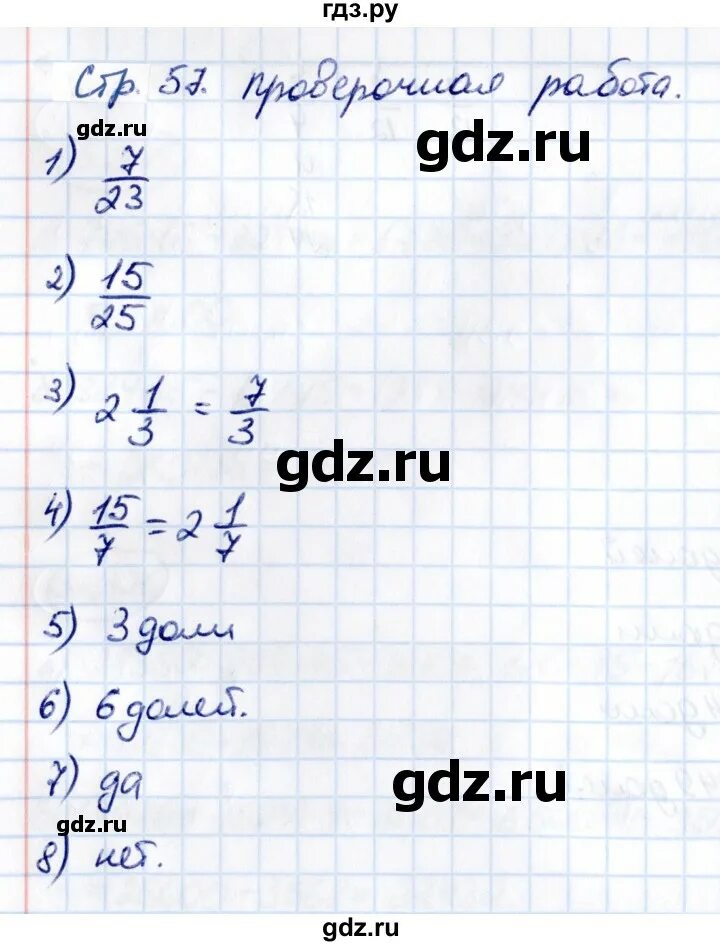 гдз.ру
Стр. 57. проверочная работа.
gdz.ru
gdz.ru
1) 7/23
2) 15/25
3) 2 1/3 = 7/3
gdz.ru
4) 15/7 = 2 1/7
5) 3 доли
6) 6 долей.
7) да
gdz.ru
gdz.ru
8) нет.
gdz.ru